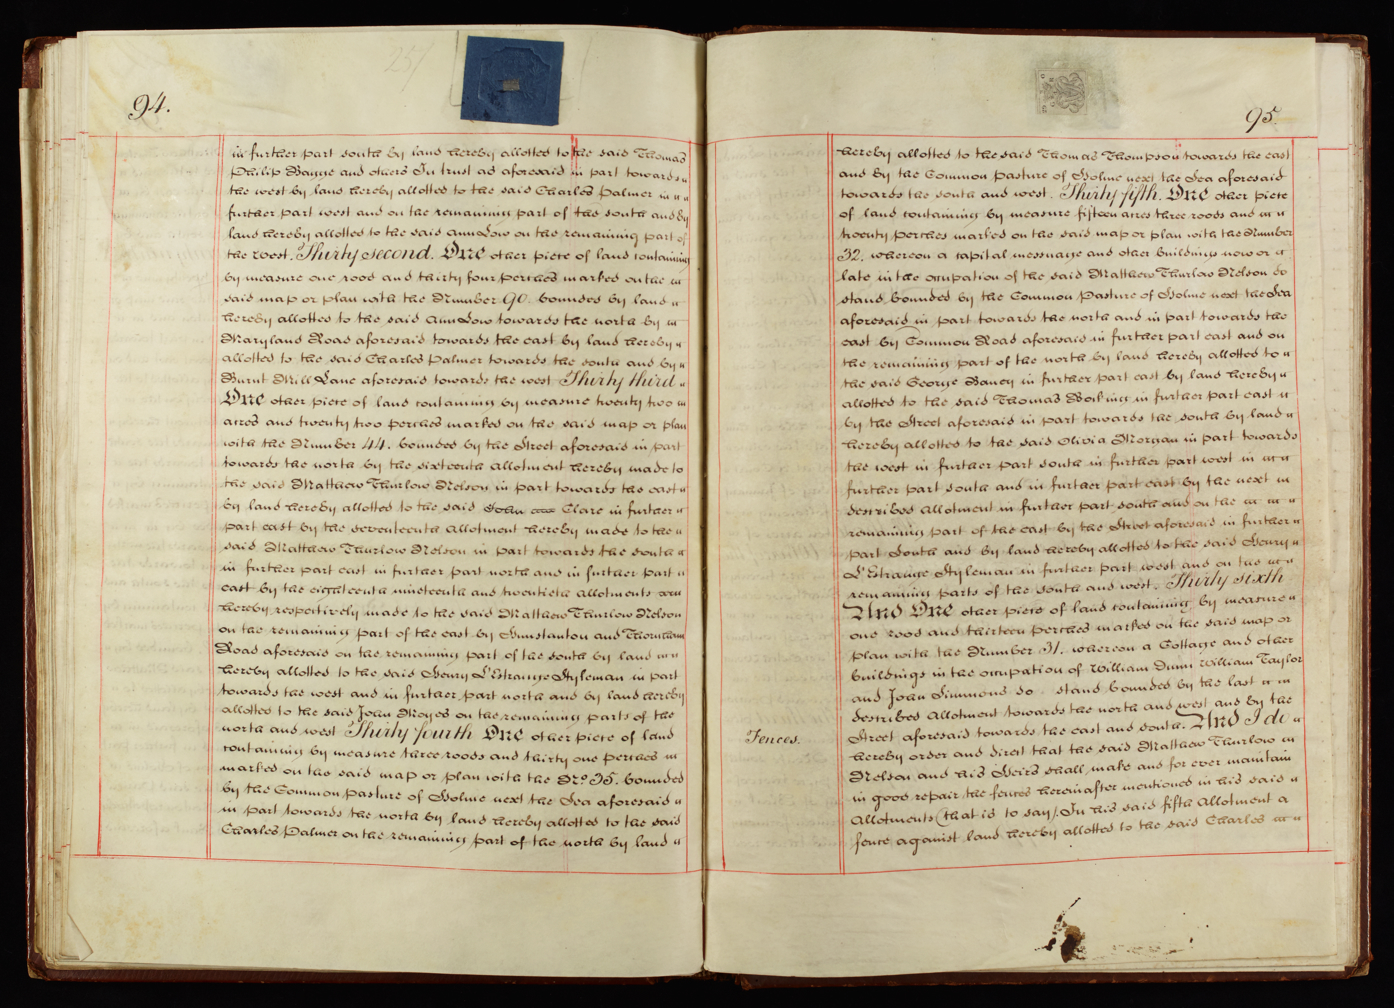 94.
251
in further part south by land hereby allotted to the said Thomas
Philip Bagge and others In trust as aforesaid in part towards
the west by land hereby allotted to the said Charles Palmer in
further part west and on the remaining part of the south and by
land hereby allotted to the said Ann Low on the remaining part of
the West. Thirty second. One other piece of land containing
by measure one rood and thirty four perches marked on the
said map or plan with the Number 90. bounded by land
hereby allotted to the said Ann Low towards the north by
Maryland Road aforesaid towards the east by land hereby
allotted to the said Charles Palmer towards the south and by
Burnt Mill Lane aforesaid towards the west Thirty third
One other piece of land containing by measure twenty two
acres and twenty two perches marked on the said map or plan
with the Number 44. bounded by the Street aforesaid in part
towards the north by the sixteenth Allotment hereby made to
the said Matthew Thurlow Nelson in part towards the east
by land hereby allotted to the said John Clare in further
part east by the seventeenth Allotment hereby made to the
said Matthew Thurlow Nelson in part towards the south
in further part east in further part north and in further part
east by the eighteenth nineteenth and twentieth Allotments
hereby respectively made to the said Matthew Thurlow Nelson
on the remaining part of the east by Hunstanton and Thornham
Road aforesaid on the remaining part of the south by land
hereby allotted to the said Henry L'Estrange Styleman in part
towards the west and in further part north and by land hereby
allotted to the said John Noyes on the remaining parts of the
north and west Thirty fourth One other piece of land
containing by measure three roods and thirty one perches
marked on the said map or plan with the No. 35. bounded
by the Common pasture of Holme next the Sea aforesaid
in part towards the north by land hereby allotted to the said
Charles Palmer on the remaining part of the north by land
95.
hereby allotted to the said Thomas Thompson towards the east
and by the Common Pasture of Holme next the Sea aforesaid
towards the south and west. Thirty fifth. One other piece
of land containing by measure fifteen acres three roods and
twenty perches marked on the said map or plan with the Number
32. whereon a capital messuage and other buildings now or
late in the occupation of the said Matthew Thurlow Nelson do
stand bounded by the Common Pasture of Holme next the Sea
aforesaid in part towards the north and in part towards the
east by Common Road aforesaid in further part east and on
the remaining part of the north by land hereby allotted to
the said George Haney in further part east by land hereby
allotted to the said Thomas Hosking in further part east
by the Street aforesaid in part towards the south by land
hereby allotted to the said Olivia Morgan in part towards
the west in further part south in further part west in
further part south and in further part east by the next
described Allotment in further part south and on the
remaining part of the east by the Street aforesaid in further
part South and by land hereby allotted to the said Henry
L'Estrange Styleman in further part west and on the
remaining parts of the south and west. Thirty sixth
And One other piece of land containing by measure
one rood and thirteen perches marked on the said map or
plan with the Number 31. whereon a Cottage and other
buildings in the occupation of William Dunn William Taylor
and John Simmons do stand bounded by the last
described Allotment towards the north and west and by the
Street aforesaid towards the east and south. And I do
Fences.
hereby order and direct that the said Matthew Thurlow
Nelson and his Heirs shall make and for ever maintain
in good repair the fences hereinafter mentioned in his said
Allotments (that is to say) In his said fifth Allotment a
fence against land hereby allotted to the said Charles